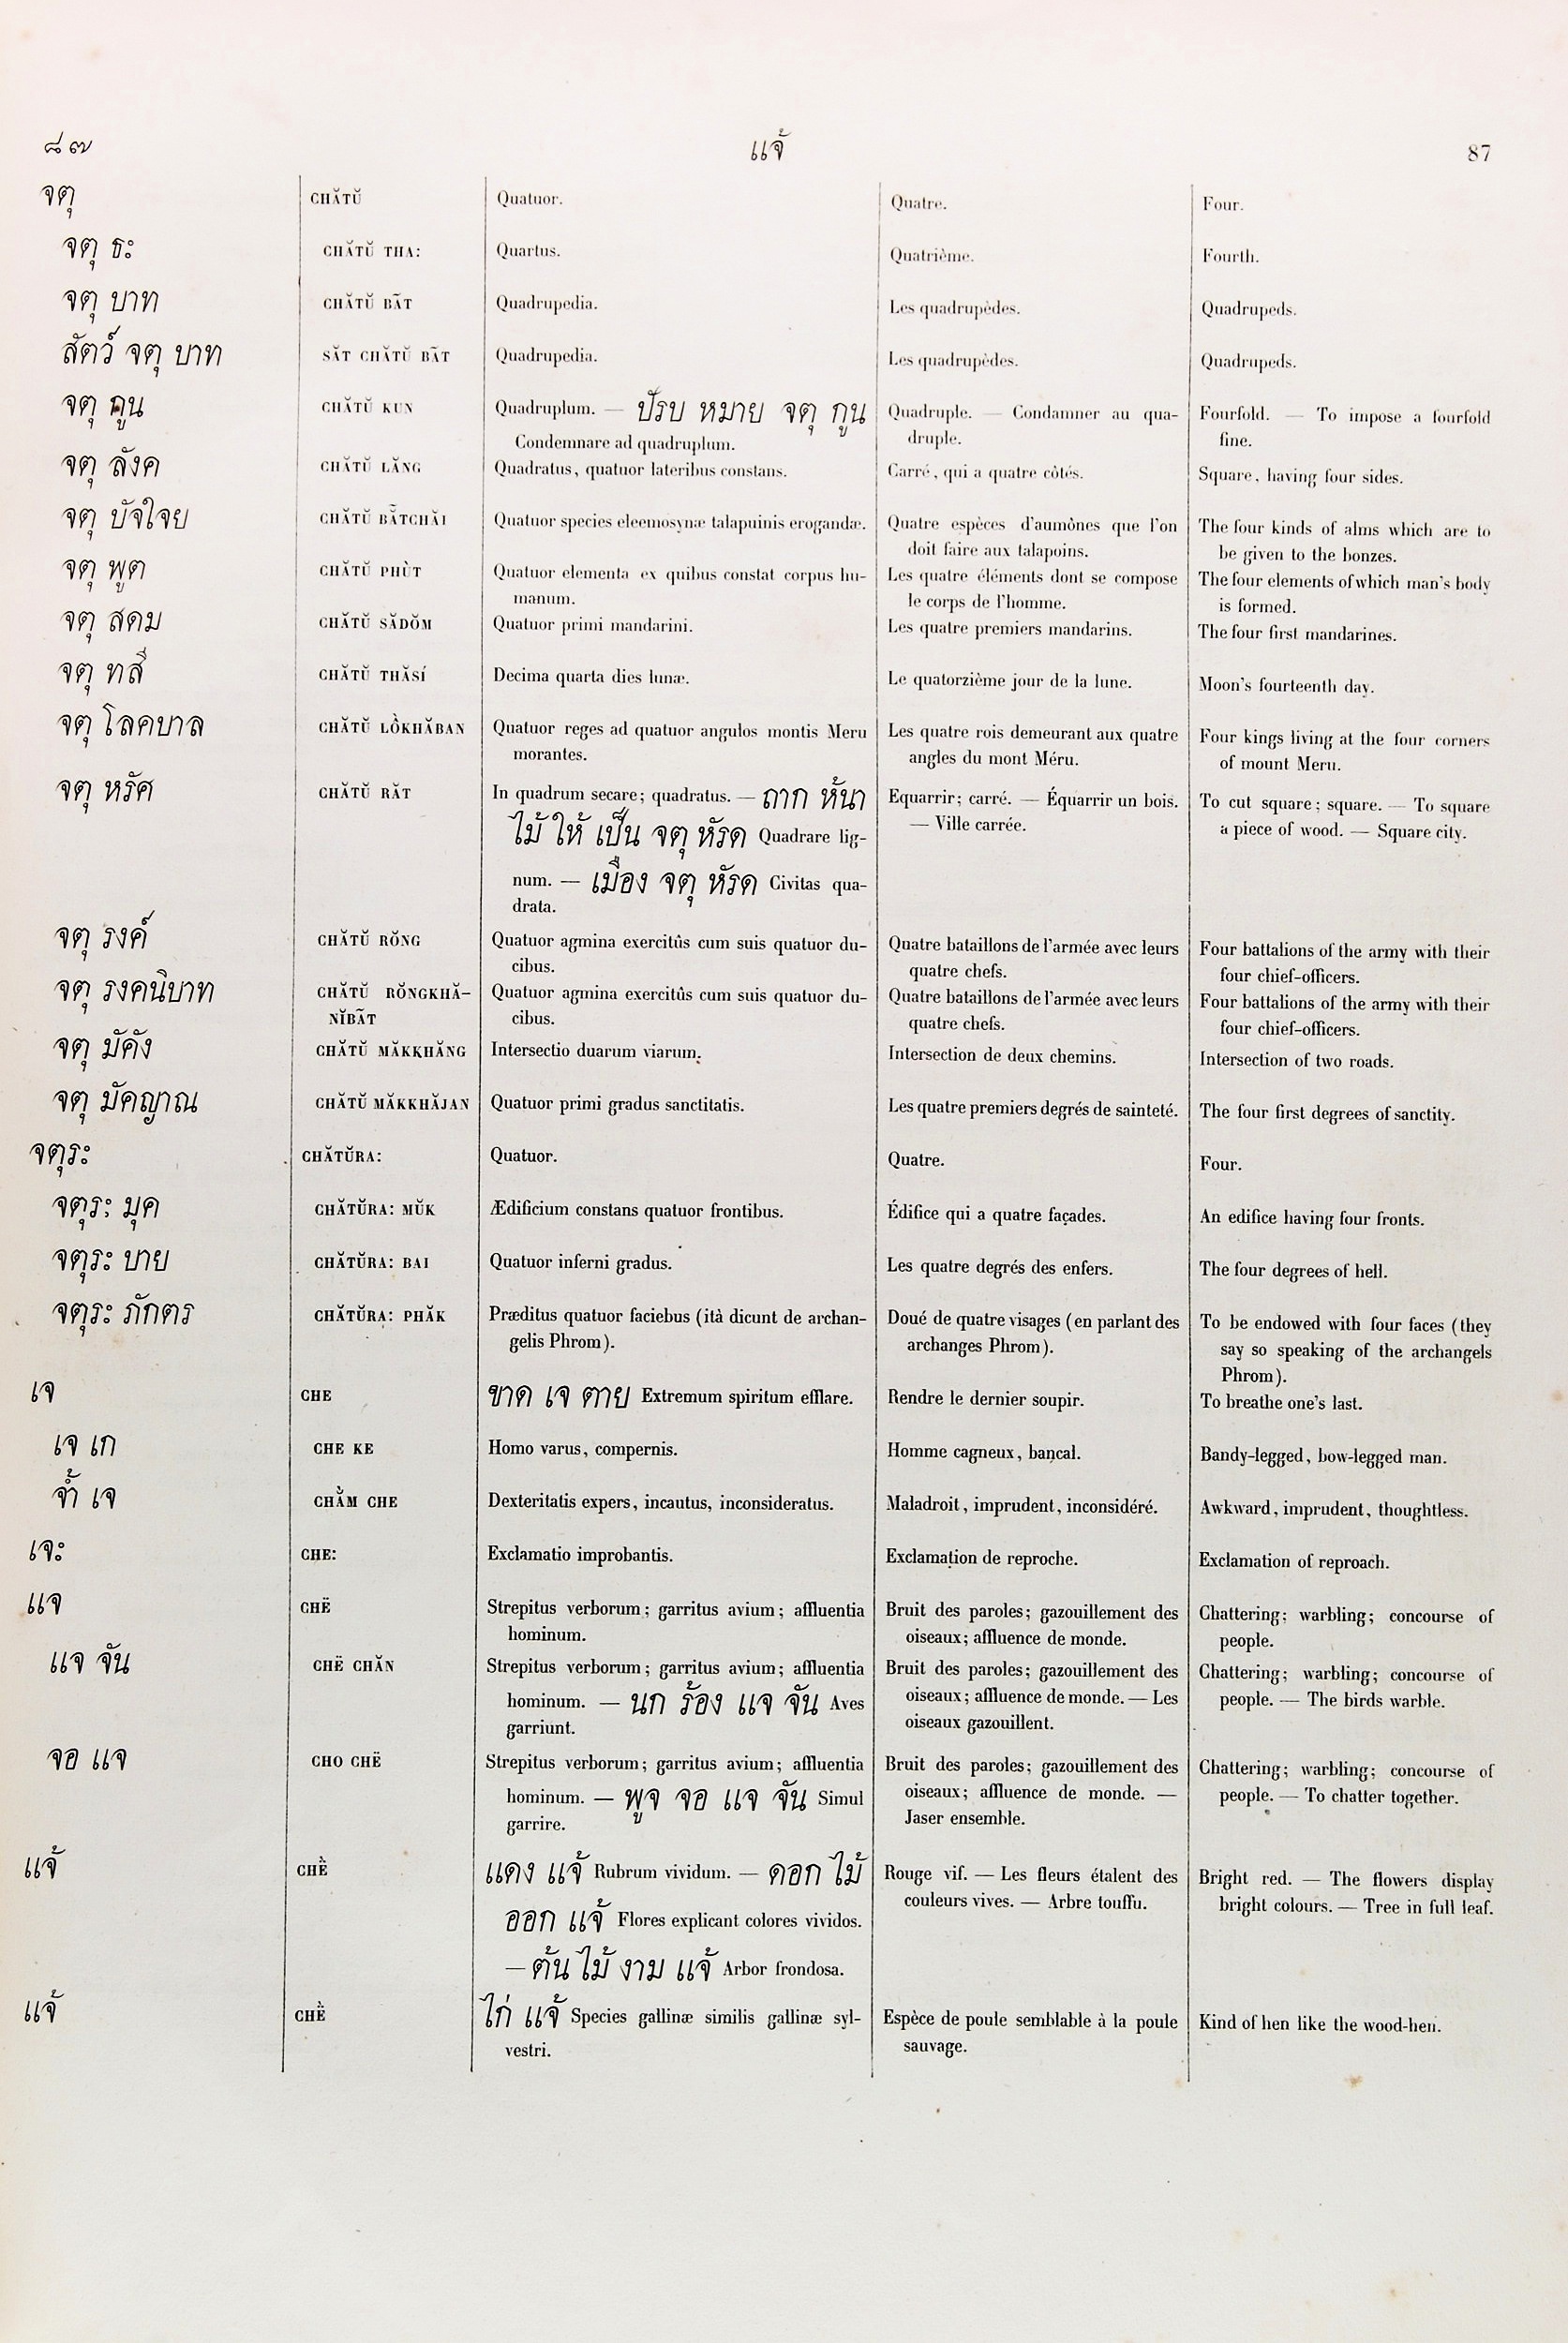 ๘๗ แจ้ 87
จตุ CHĂTŬ Quatuor. Quatre. Four.
จตุ ธะ CHĂTŬ THA: Quartus. Quatrième. Fourth.
จตุ บาท CHĂTŬ BÃT Quadrupedia. Les quadrupèdes. Quadrupeds.
สัตว์ จตุ บาท SĂT CHĂTŬ BÃT Quadrupedia. Les quadrupèdes. Quadrupeds.
จตุ คูน CHĂTŬ KUN Quadruplum. — ปัรบ หมาย จตุ กูน Quadruple. — Condamner au qua- Fourfold. — To impose a fourfold
Condemnare ad quadruplum. druple. fine.
จตุ ลังค CHĂTŬ LĂNG Quadratus, quatuor lateribus constans. Carré, qui a quatre côtés. Square, having four sides.
จตุ บัจใจย CHĂTŬ BÃTCHĂI Quatuor species eleemosynæ talapuinis erogandæ. Quatre espèces d'aumônes que l'on The four kinds of alms which are to
doit faire aux talapoins. be given to the bonzes.
จตุ พูต CHĂTŬ PHÙT Quatuor elementa ex quibus constat corpus hu- Les quatre éléments dont se compose The four elements of which man's body
manum. le corps de l'homme. is formed.
จตุ สดม CHĂTŬ SĂDŎM Quatuor primi mandarini. Les quatre premiers mandarins. The four first mandarines.
จตุ ทสี CHĂTŬ THĂSÍ Decima quarta dies lunæ. Le quatorzième jour de la lune. Moon's fourteenth day.
จตุ โลคบาล CHĂTŬ LỒKHĂBAN Quatuor reges ad quatuor angulos montis Meru Les quatre rois demeurant aux quatre Four kings living at the four corners
morantes. angles du mont Méru. of mount Meru.
จตุ หรัศ CHĂTŬ RĂT In quadrum secare; quadratus. — ถาก ห้นา Equarrir; carré. — Équarrir un bois. To cut square; square. — To square
ไม้ ให้ เป็น จตุ หัรด Quadrare lig- — Ville carrée. a piece of wood. — Square city.
num. — เมือง จตุ หัรด Civitas qua-
drata.
จตุ รงค์ CHĂTŬ RŎNG Quatuor agmina exercitûs cum suis quatuor du- Quatre bataillons de l'armée avec leurs Four battalions of the army with their
cibus. quatre chefs. four chief-officers.
จตุ รงคนิบาท CHĂTŬ RŎNGKHĂ- Quatuor agmina exercitûs cum suis quatuor du- Quatre bataillons de l'armée avec leurs Four battalions of the army with their
NĬBÃT cibus. quatre chefs. four chief-officers.
จตุ มัคัง CHĂTŬ MĂKKHĂNG Intersectio duarum viarum. Intersection de deux chemins. Intersection of two roads.
จตุ มัคญาณ CHĂTŬ MĂKKHĂJAN Quatuor primi gradus sanctitatis. Les quatre premiers degrés de sainteté. The four first degrees of sanctity.
จตุระ CHĂTŬRA: Quatuor. Quatre. Four.
จตุระ มุค CHĂTŬRA: MŬK Ædificium constans quatuor frontibus. Édifice qui a quatre façades. An edifice having four fronts.
จตุระ บาย CHĂTŬRA: BAI Quatuor inferni gradus. Les quatre degrés des enfers. The four degrees of hell.
จตุระ ภักตร CHĂTŬRA: PHĂK Præditus quatuor faciebus (ità dicunt de archan- Doué de quatre visages (en parlant des To be endowed with four faces (they
gelis Phrom). archanges Phrom). say so speaking of the archangels
Phrom).
เจ CHE ขาด เจ ตาย Extremum spiritum efflare. Rendre le dernier soupir. To breathe one's last.
เจ เก CHE KE Homo varus, compernis. Homme cagneux, bancal. Bandy-legged, bow-legged man.
จ้ำ เจ CHÀ̆M CHE Dexteritatis expers, incautus, inconsideratus. Maladroit, imprudent, inconsidéré. Awkward, imprudent, thoughtless.
เจะ CHE: Exclamatio improbantis. Exclamation de reproche. Exclamation of reproach.
แจ CHË Strepitus verborum; garritus avium; affluentia Bruit des paroles; gazouillement des Chattering; warbling; concourse of
hominum. oiseaux; affluence de monde. people.
แจ จัน CHË CHĂN Strepitus verborum; garritus avium; affluentia Bruit des paroles; gazouillement des Chattering; warbling; concourse of
hominum. — นก ร้อง แจ จัน Aves oiseaux; affluence de monde. — Les people. — The birds warble.
garriunt. oiseaux gazouillent.
จอ แจ CHO CHË Strepitus verborum; garritus avium; affluentia Bruit des paroles; gazouillement des Chattering; warbling; concourse of
hominum. — พูจ จอ แจ จัน Simul oiseaux; affluence de monde. — people. — To chatter together.
garrire. Jaser ensemble.
แจ้ CHË̀ แดง แจ้ Rubrum vividum. — ดอก ไม้ Rouge vif. — Les fleurs étalent des Bright red. — The flowers display
ออก แจ้ Flores explicant colores vividos. couleurs vives. — Arbre touffu. bright colours. — Tree in full leaf.
— ต้น ไม้ งาม แจ้ Arbor frondosa.
แจ้ CHË̀ ไก่ แจ้ Species gallinæ similis gallinæ syl- Espèce de poule semblable à la poule Kind of hen like the wood-hen.
vestri. sauvage.